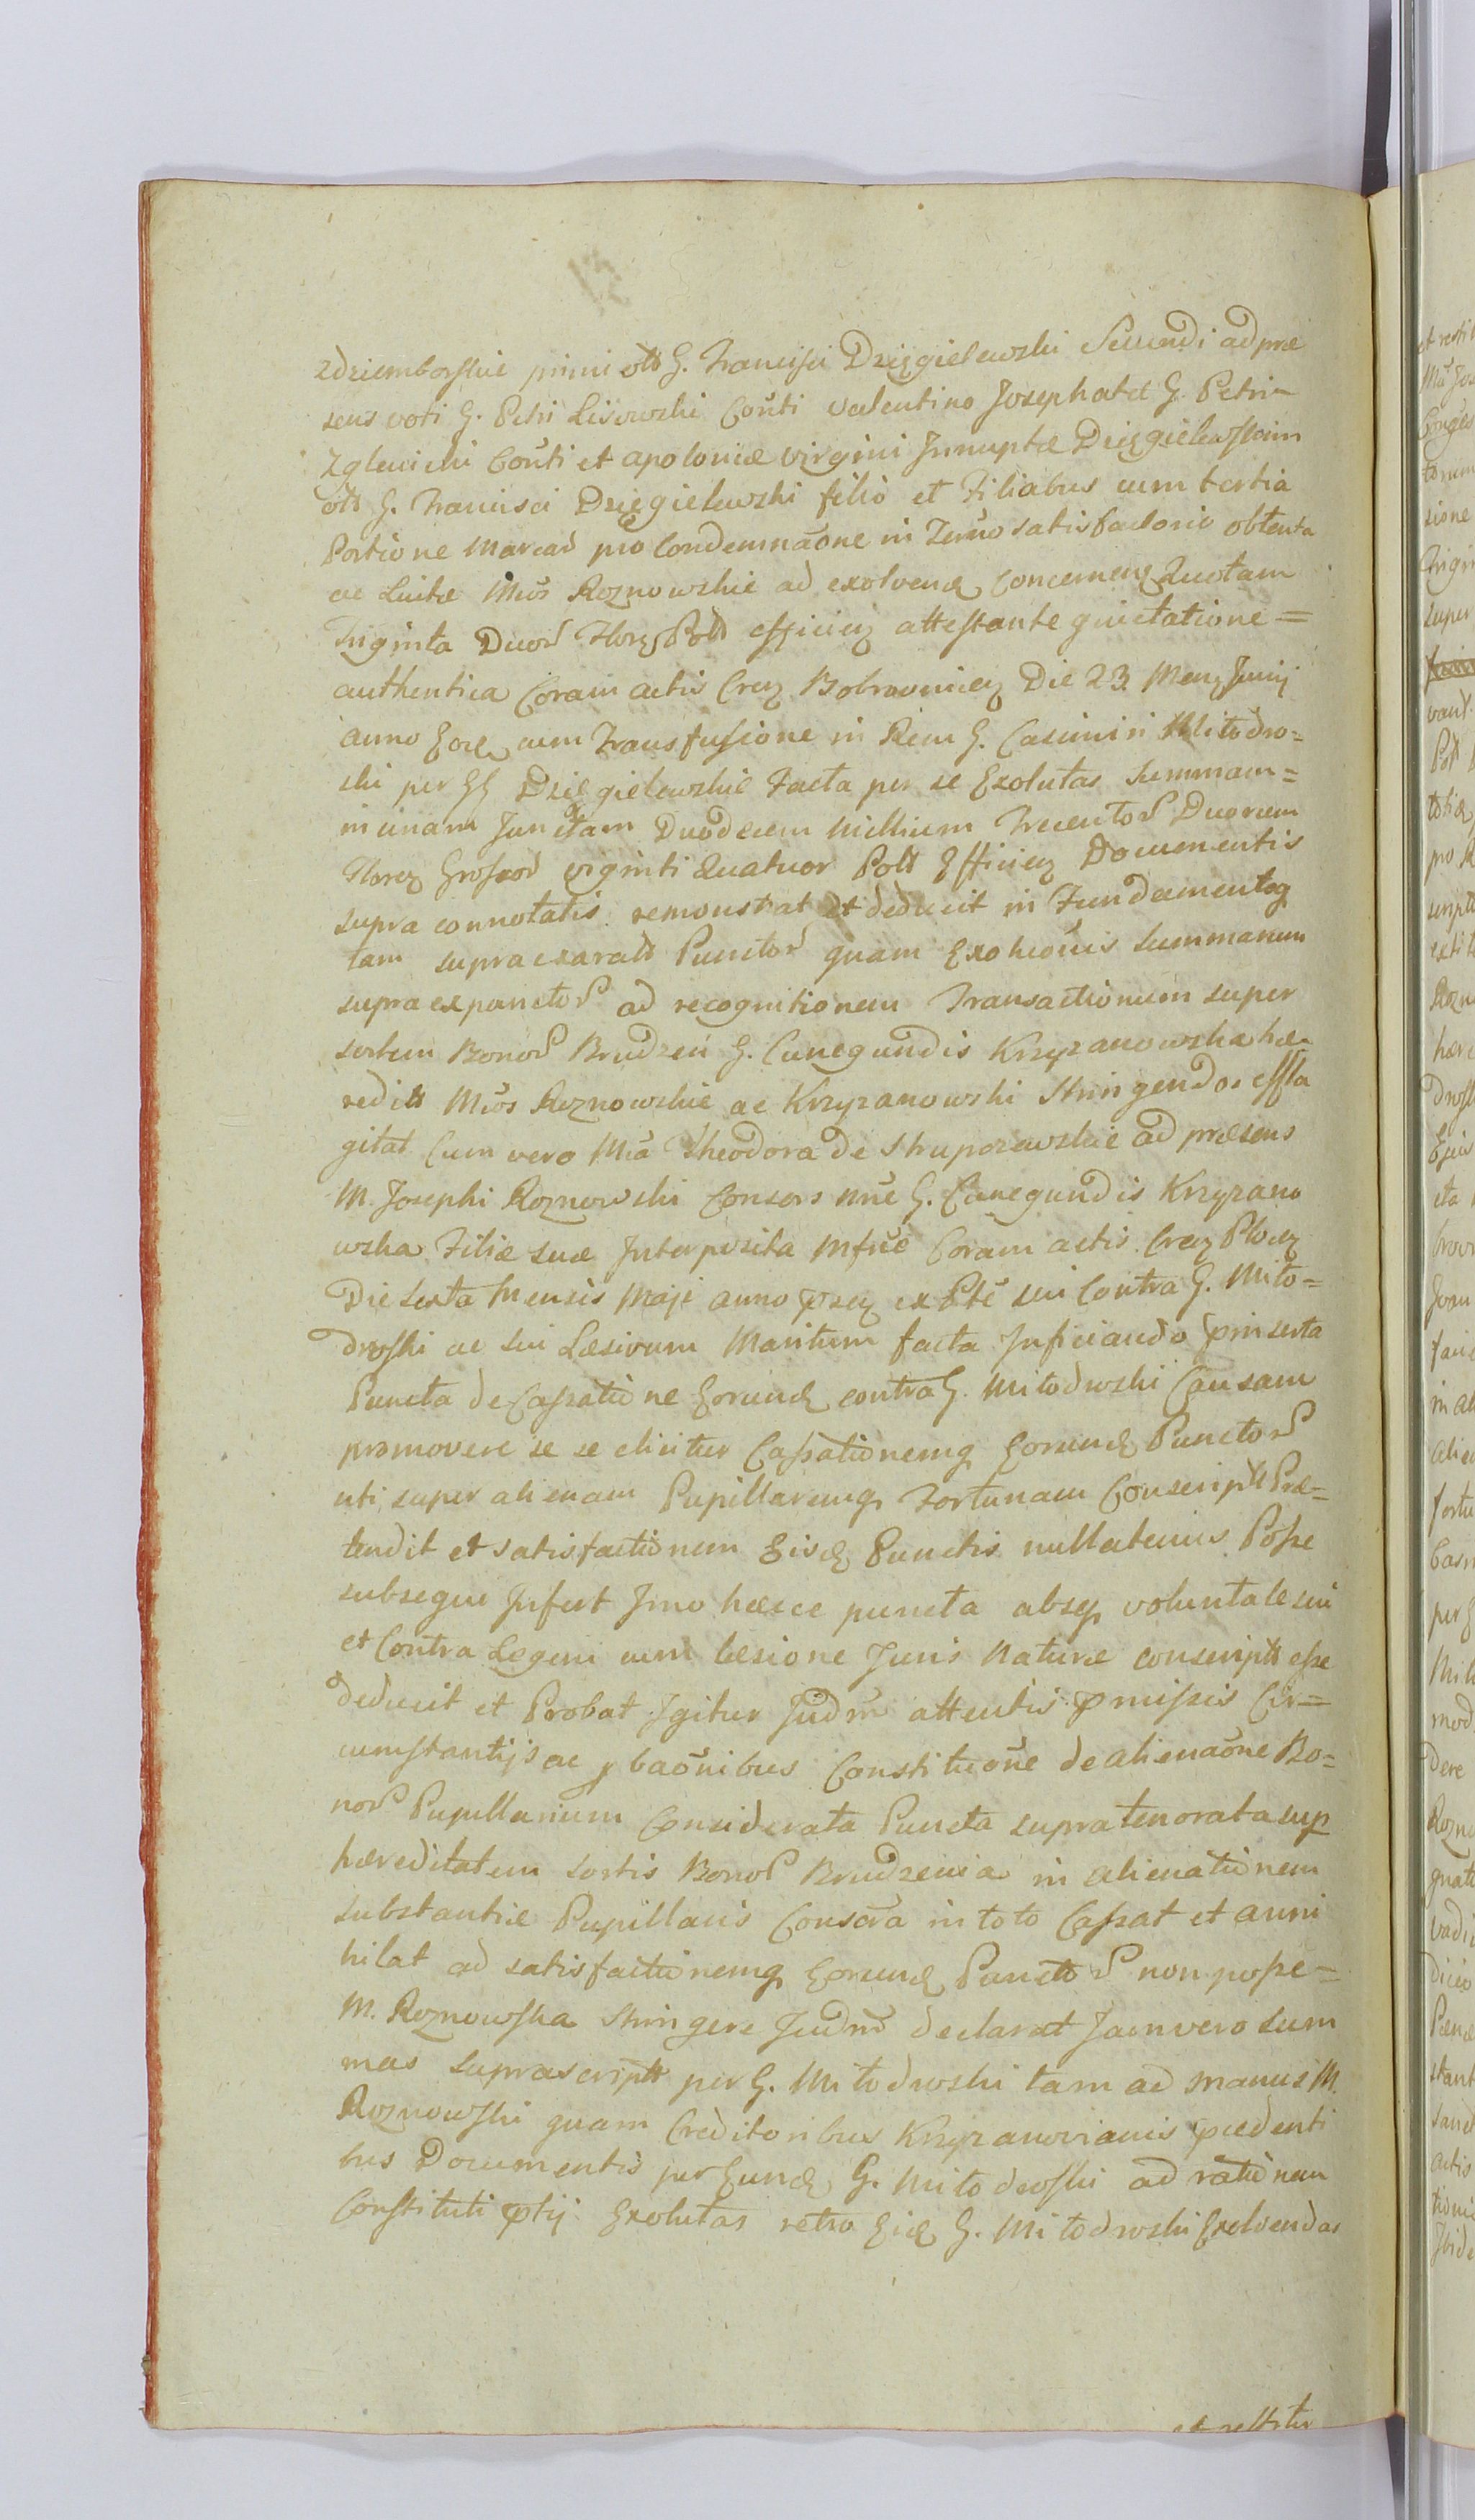 Zdziemborskie primi ott G. Francisci Dzięgielewski Secundi ad præ
sens voti G. Petri Lisowski Coñti Valentino Josephatæ G. Petri
Zglenicki Coñti et Apoloniæ virgini Innuptæ Dzięgielewskim
ott G. Francisci Dzięgielewski filio et Filiabus cum tertia
Portione Marcar pro Condemnaõne in Termo satisfactorio obtenta
ac Luitæ Mcõs Roznowskie ad exolvend concernen Quotam
Triginta Duor Floren Poll efficien attestante quietatione =
authentica Coram actis Cren Bobrovnicen Die 23 Mens Junij
anno Eode cum Transfusione in Rem G. Casimiri Mitodro=
ski per GG Dzięgielewskie Facta per se Exolutas Summam=
in unam Junctam Duodecem Millium Trecentor Duorum
Floren Grossor viginti Quatuor Poll Efficien Documentis
supra connotatis remonstrat Et deducit in Fundamentoq
tam supra exaratt Punctor quam Exolutiõis Summarum
supra expunctor ad recognitionem Transactionum super
sortem Bonor Brudzeń G. Cunegundis Krzyzanowska hæ
redit Mcõs Roznowskie ac Krzyzanowski Stringendos effla
gitat Cum vero Mca Theodora de Strupczewskie ad præsens
M. Josephi Roznowski Consors nñe G. Cunegundis Krzyzano
wska Filiæ suæ Interposita Mfñe Coram actis Cren Plocen
Die Sexta Mensis Maji anno præn ex Pte sui Contra G. Mito=
droski ac sui Læsivum Maritum facta Inficiando præinserta
Puncta de Cassatione Eorund contra G. Mitodroski Causam
promovere se se elicitur Cassationemq Eorund Punctor
uti super alienam Pupillaremq Fortunam Conscriptt Præ=
tendit et satisfactionem Eisd Punctis nullatenus Posse
subsequi Infert Imo hæcce puncta absq voluntate sui
et Contra Legem cum læsione Juris Naturæ conscriptt esse
deducit et Probat Igitur Judm attentis præmissis Cir=
cumstantijs ac pbaõnibus Constituõne de alienaõne Bo=
nor Pupillarium Considerata Puncta supra tenorata sup
hæreditatem sortis Bonor Brudzenia in alienationem
substantiæ Pupillaris Conscra in toto Cassat et anni
hilat ad satisfactionemq Eorund Punctor non posse=
M. Roznowska Stringere Judm declarat Jam vero sum
mas suprascriptt per G. Mitodroski tam ad manus M.
Roznowski quam Creditoribus Krzyzanovianis præcedenti
bus Documentis per Eund G. Mitodroski ad rationem
Constituti prætij Exolutas retro Eid G. Mitodroski Exolvendas
et restitu